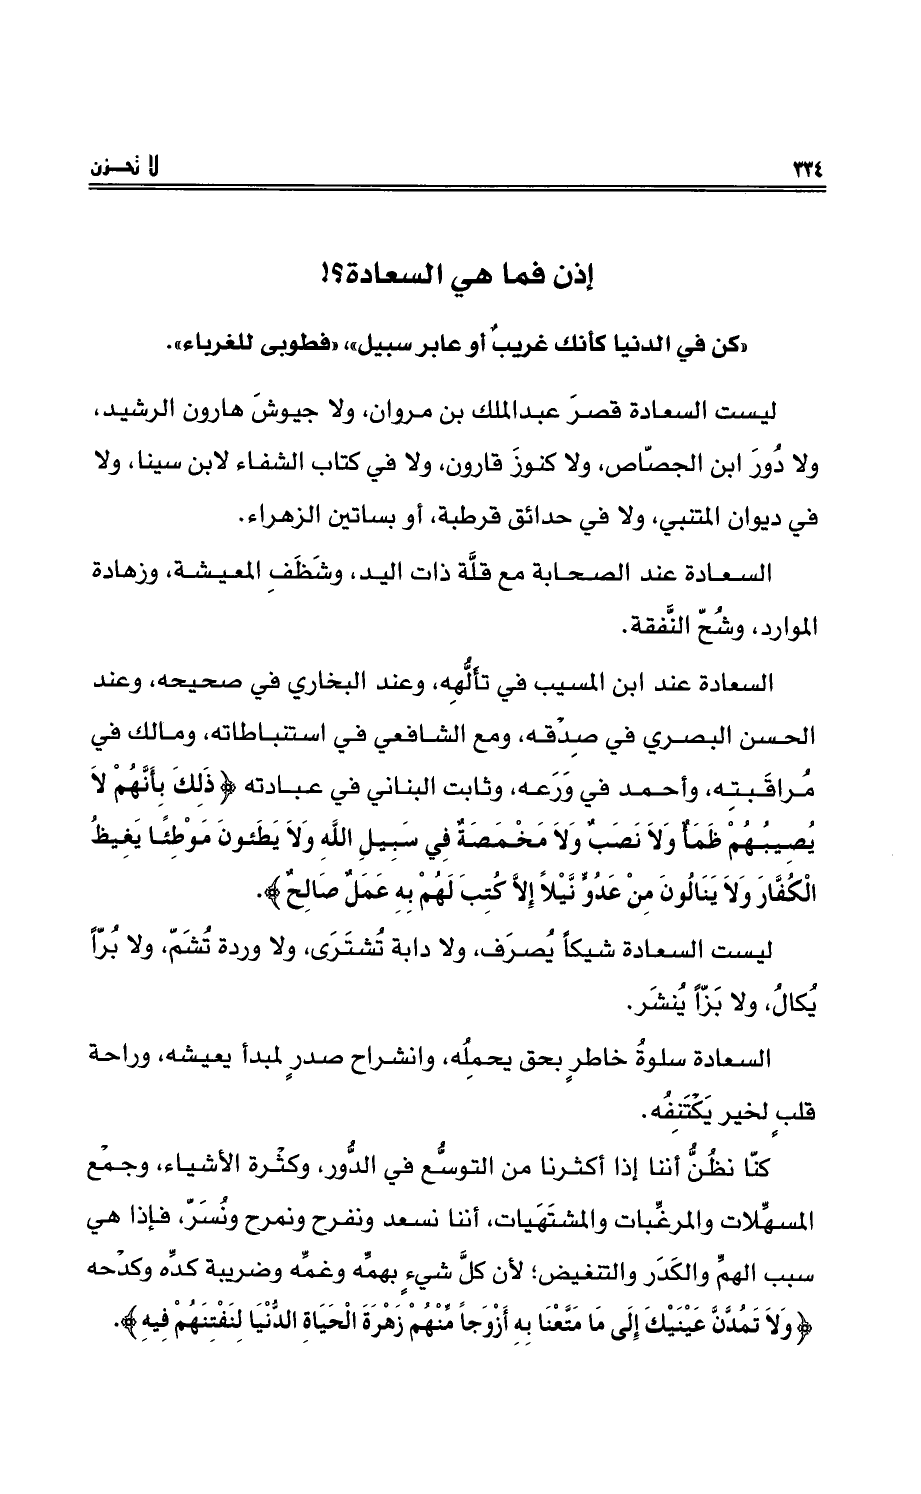 ٣٣٤
لا تحـزن
إذن فما هي السعادة؟!
«كن في الدنيا كأنك غريبٌ أو عابر سبيل»، «فطوبى للغرباء».
ليست السعادة قصرَ عبدالملك بن مروان، ولا جيوشَ هارون الرشيد،
ولا دُورَ ابن الجصّاص، ولا كنوزَ قارون، ولا في كتاب الشفاء لابن سينا، ولا
في ديوان المتنبي، ولا في حدائق قرطبة، أو بساتين الزهراء.
السعادة عند الصحابة مع قلَّة ذات اليد، وشَظَفِ المعيشة، وزهادة
الموارد، وشُحّ النَّفقة.
السعادة عند ابن المسيب في تألُّهِه، وعند البخاري في صحيحه، وعند
الحسن البصري في صِدْقه، ومع الشافعي في استنباطاته، ومالك في
مُراقَبته، وأحمد في وَرَعه، وثابت البناني في عبادته ﴿ذَلكَ بأَنَّهُمْ لاَ
يُصيبُهُمْ ظَمأٌ وَلاَ نَصَبٌ وَلاَ مَخْمَصَةٌ في سَبيل اللَّه وَلاَ يَطَئونَ مَوْطئًا يَغيظُ
الْكُفَّارَ وَلاَ يَنَالُونَ منْ عَدُوٍّ نَّيْلاً إلاَّ كُتبَ لَهُمْ به عَمَلٌ صَالحٌ﴾.
ليست السعادة شيكاً يُصرَف، ولا دابة تُشتَرَى، ولا وردة تُشَمّ، ولا بُرّاً
يُكالُ، ولا بَزّاً يُنشَر.
السعادة سلوةُ خاطرٍ بحق يحمِلُه، وانشراح صدرٍ لمبدأ يعيشه، وراحة
قلبٍ لخير يَكْتَنِفُه.
كنّا نظُنُّ أننا إذا أكثرنا من التوسُّع في الدُّور، وكثْرة الأشياء، وجمْع
المسهِّلات والمرغِّبات والمشتَهَيات، أننا نسعد ونفرح ونمرح ونُسَرّ، فإذا هي
سبب الهمِّ والكَدَر والتنغيص؛ لأن كلَّ شيءٍ بهمِّه وغمِّه وضريبة كدِّه وكدْحه
﴿وَلاَ تَمُدَّنَّ عَيْنَيْكَ إلَى مَا مَتَّعْنَا به أَزْوَجاً مِّنْهُمْ زَهْرَةَ الْحَيَاة الدُّنْيَا لنَفْتنَهُمْ فيه﴾.